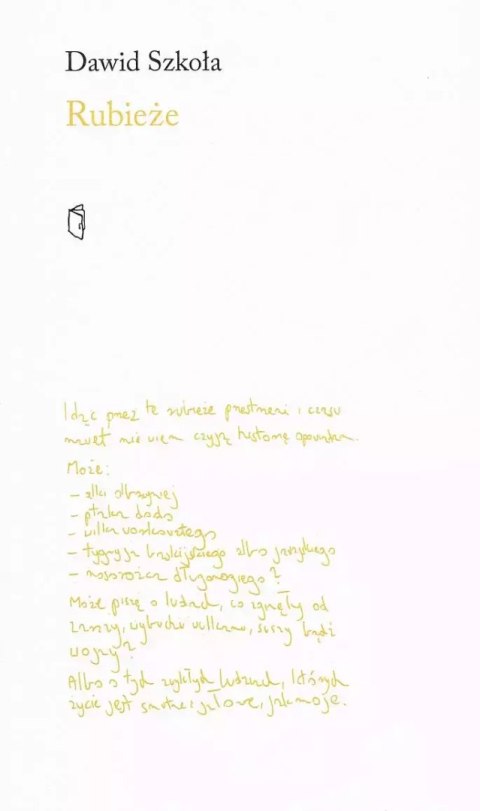 Dawid Szkoła
Rubieże
Idąc przez te rubieże przestrzeni i czasu
nawet nie wiem czyją historię opowiadam.
Może:
– alki olbrzymiej
– ptaka dodo
– wilka workowatego
– tygrysa kaspijskiego albo jawajskiego
– nosorożca długorogiego?
Może piszę o ludach, co zginęły od
zarazy, wybuchu wulkanu, suszy bądź
wojny?
Albo o tych zwykłych ludziach, których
życie jest smutne i jałowe, jak moje.